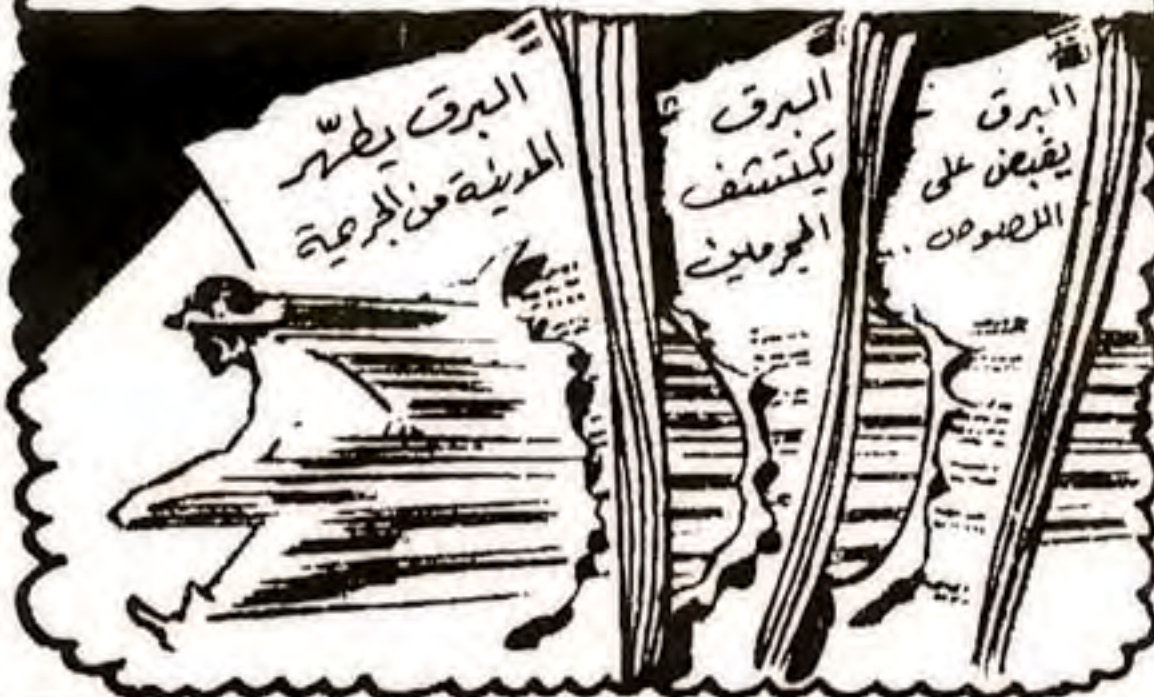 البرق
يقبض على
اللصوص ..
البرق
يكتشف
المجرمين
البرق يطهّر
المدينة من الجريمة